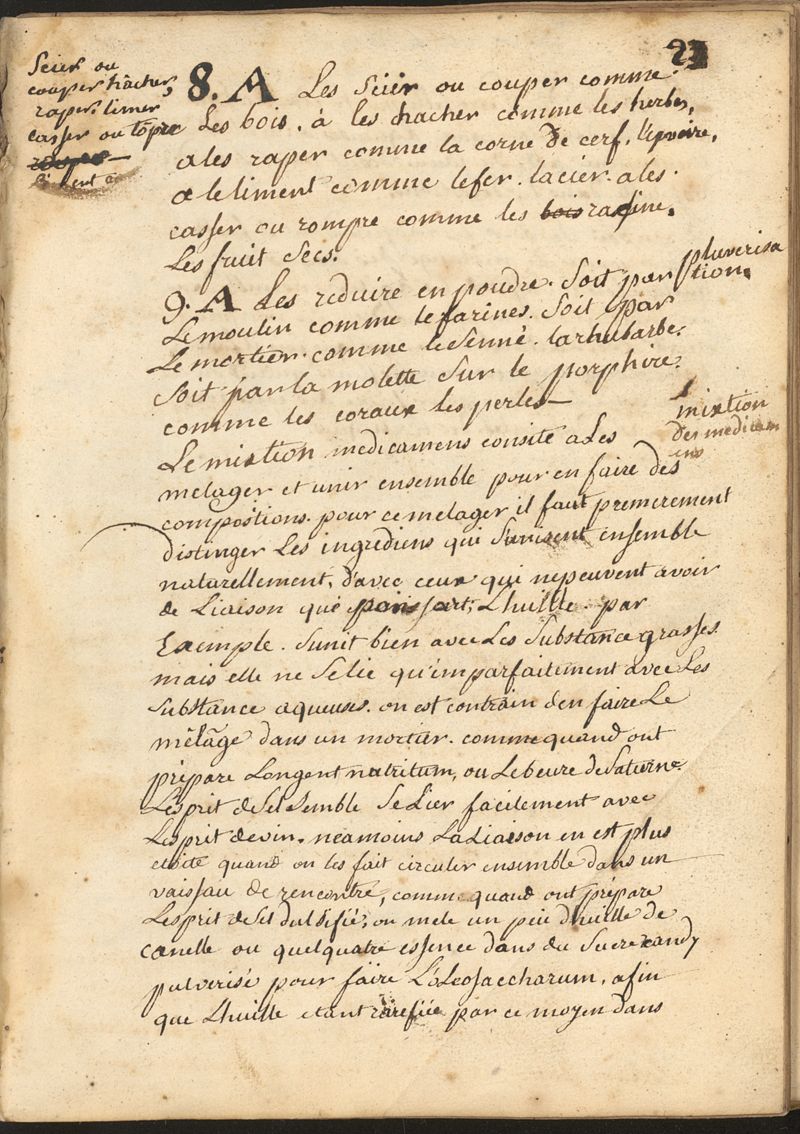 23
Scier ou
couper hacher,
raper. limer
casser ou ropre
8. A Les scier ou couper comme
Les bois. à les chacher comme les herbes,
a les raper comme la corne de cerf. l'ipvoire,
a le liment comme le fer. lacier. a les.
casser ou rompre comme les bois rasine.
Les fruit secs.
9. A Les reduire en poudre. Soit par
pluverisa
tion.
Le moulin comme le farines. Soit par
Le mortier. comme le senné. la rhubarbe.
Soit par la molette sur le porphire.
comme les coraux les perles—
mixtion
des medicam
ens
Le mixtion medicamens consite a Les
melager et unir ensemble pour en faire des
compostions. pour ce melager il faut premirement
distinger Les ingrediens qui s'unisent ensemble
naturellement, d'avec ceux qui nepeuvent avoir
de Liaison que par art, Lhuille. par
Exemple. sunit bien avec Les substance grasses
mais elle ne se lie qu'imparfaitement avec Les
substance aqueuses. on est contrain den faire Le
mélage dans un mortier. comme quand ont
prépare Longent nutritum, ou Lebeure de Saturne.
L'esprit de sel semble se Lier facilement avec
L'esprit de vin. neamoins La Liaison en est plus
etoite quand on les fait circuler ensemble dans un
vaissau de rencontre, comme quand ont prépare
L'esprit de sel dulsifié, on mele un peu d'huille de
canelle ou quelquatre essence dans du sucre candy
pulverisé pour faire L'oleosaccharum, afin
que Lhuille etant rarefiée par ce moyen dans